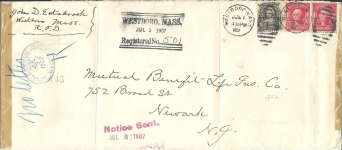 John D. Estabrook
Westboro Mass.
R.F.D.
WESTBORO, MASS.
JUL 1 1907
Registered No. 501
Mutual Benefit Life Ins. Co.
752 Broad St
Newark
N.J.
Notice Sent.
JUL 2 1907